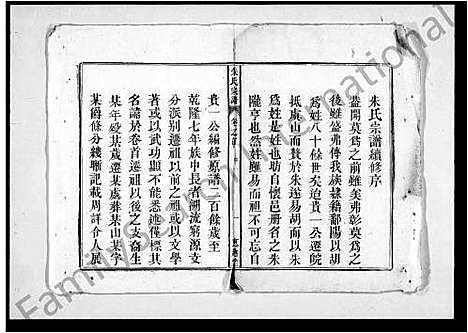 朱氏宗譜續修序
蓋聞莫爲之前雖美弗彰莫爲之
後雖盛弗傳我族隸籍鄱陽以胡
爲姓八十餘世矣迨貴一公遷皖
抵處
而贅於朱遂易胡而以朱
爲姓是姓也助自漢邑册名之朱
隴亨也然姓雖易而祖不可忘自
朱氏宗譜
貴一公編修原譜二百餘歲至
乾隆七年族中長者溯流窮源支
分派別遷祖以前之祖或以文學
著或以武功顯不能悉誌僅標其
名諡於卷首遷祖以後之支裔生
某年歿某歲遷某處葬某山某字
某爵條分縷晰記載周詳令人展
Family Search International